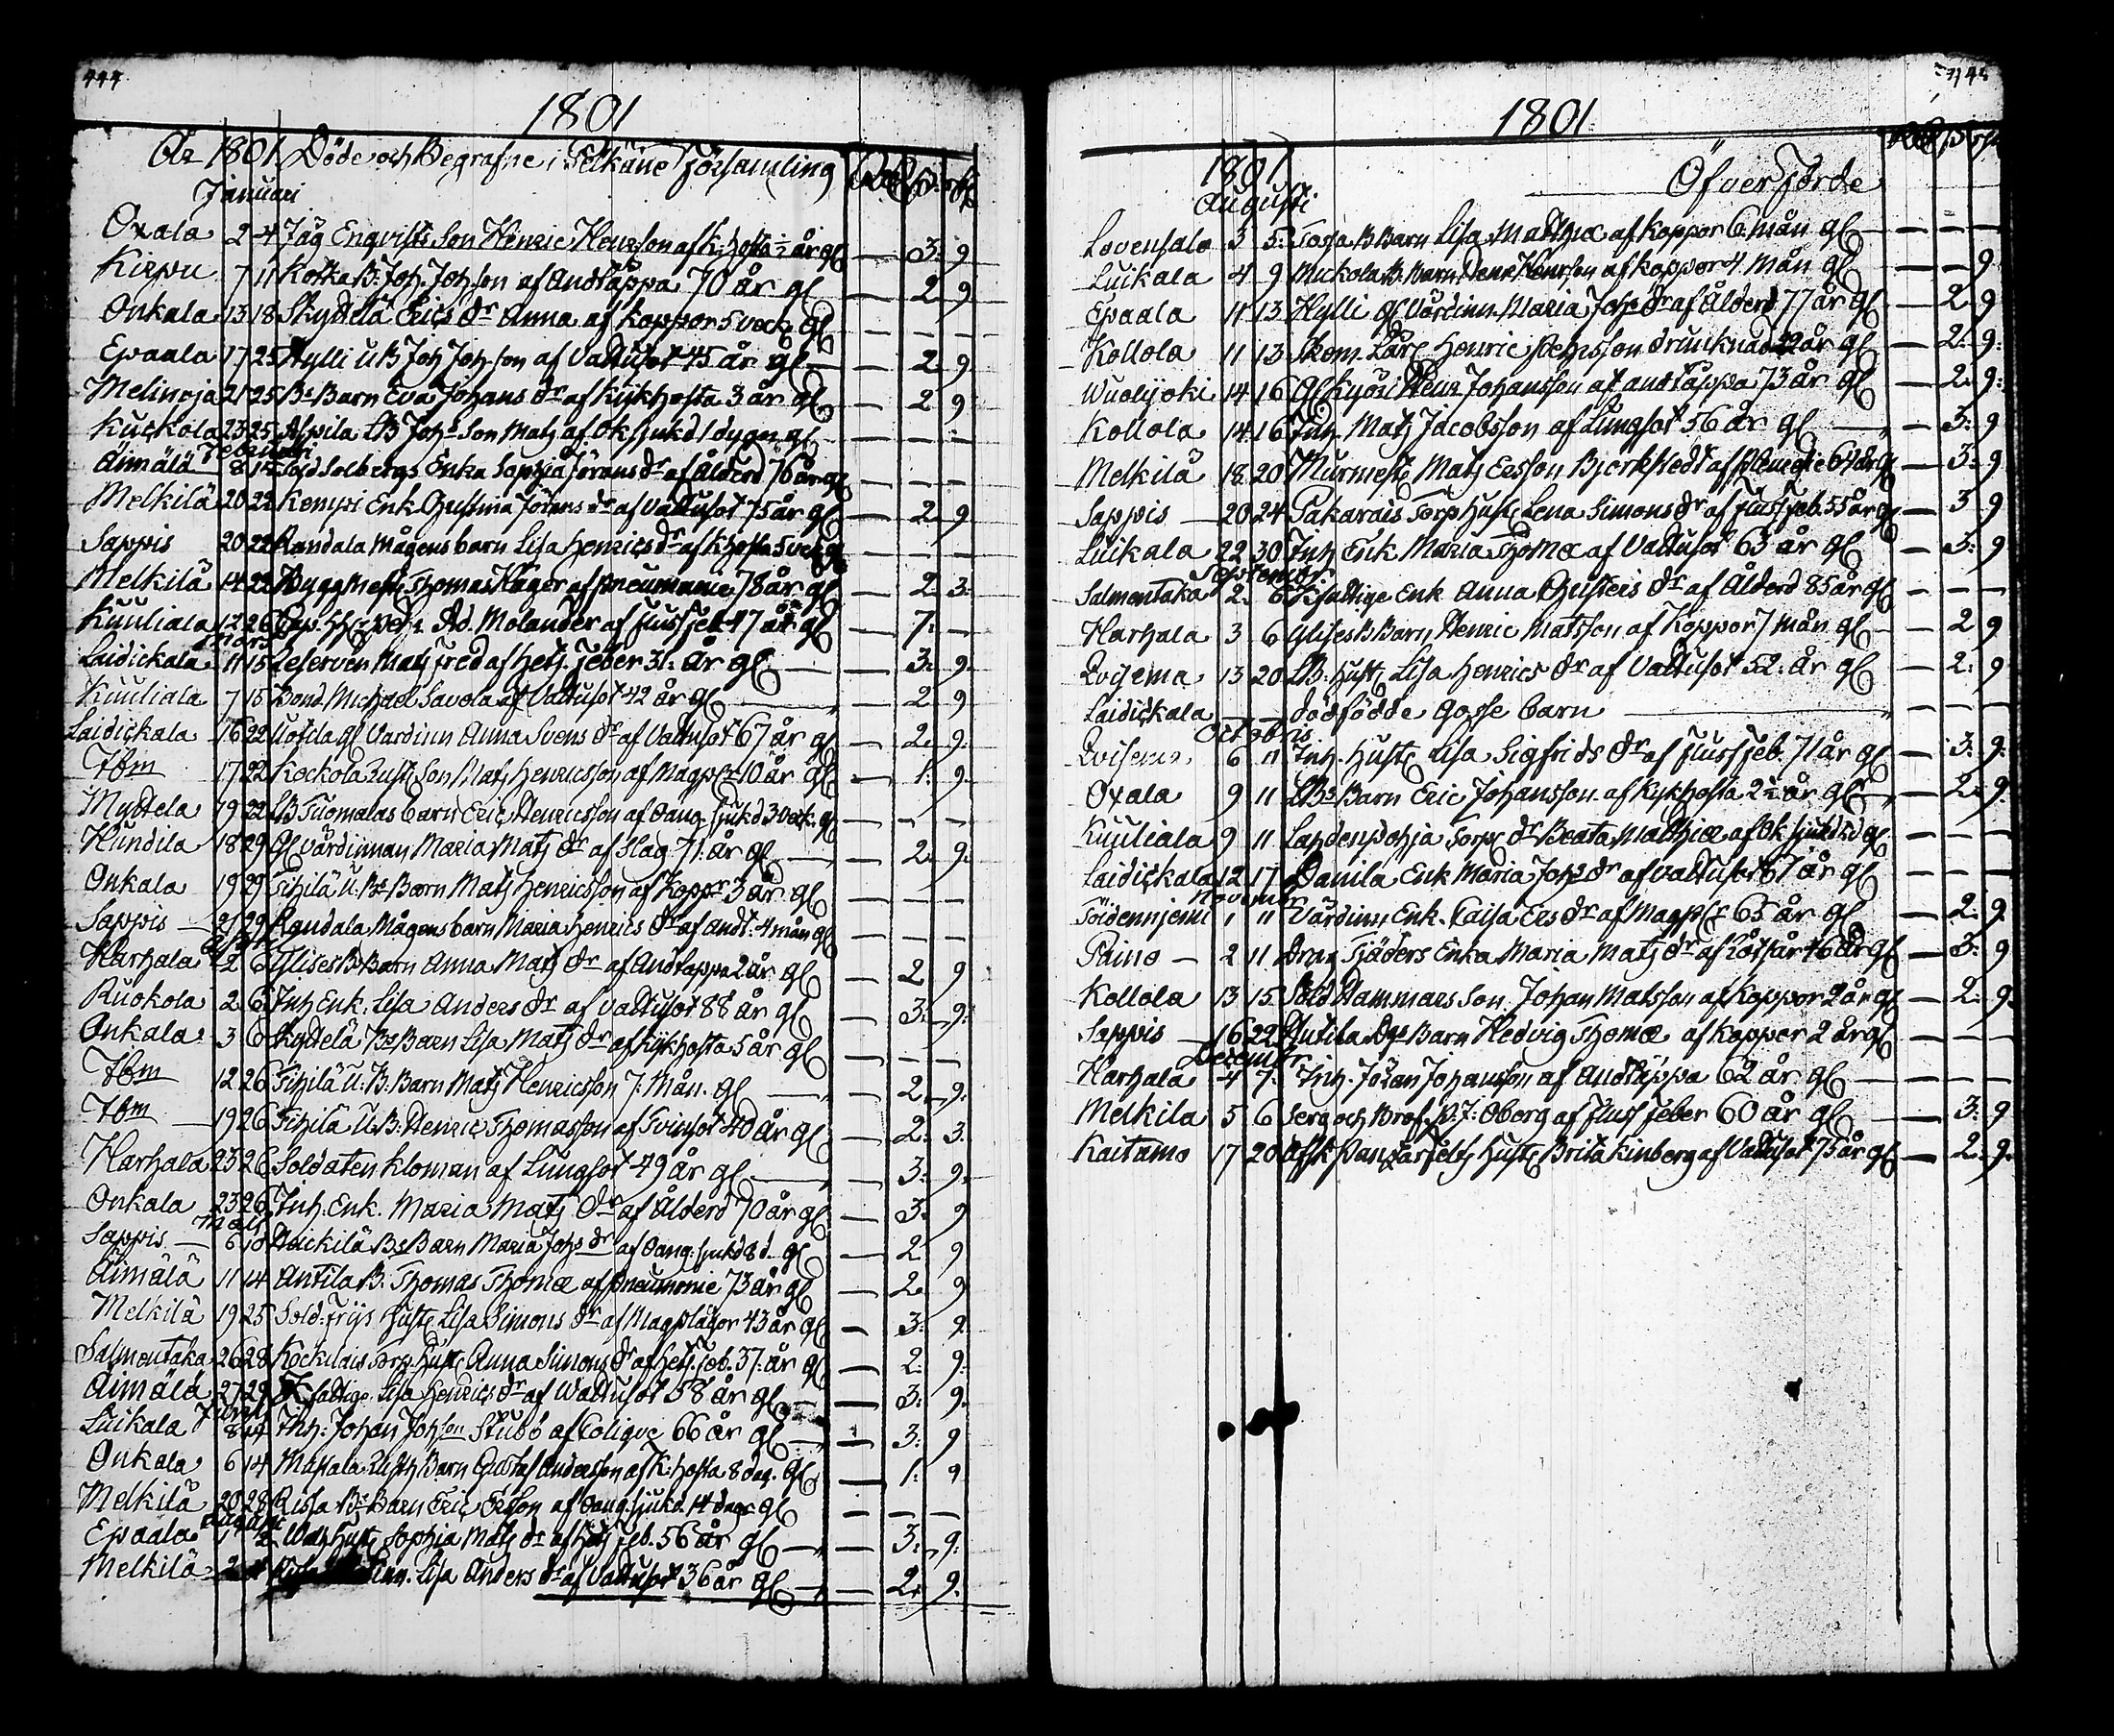 444
1801
År 1801 Döde och Begrafne i Pelkäne Församling
Januari
Oxala 2 4 Jäg Enqvists Son Henric Henrsson af K:hosta ½ år gl — 3: 9
Kirpu 7 11 Kotka B: Joh. Joh.son af Andtäppa 70 år gl — 2 9
Onkala 13 18 Skyttelä Erics dr Anna af Koppor 5 veck gl — — —
Epaala 17 25 Hylli U B Joh Joh.son af Vattusot 45 år gl — 2 9
Melinoja 21 25 Bs Barn Eva Johans dr af Kikhosta 3 år gl — 2 9
Kuckola 23 25 LB Johs Son Matz af Ok sjukd 1 dygn gl — — —
Februari
Äimälä 8 15 Sold Solbergs Enka Sophia Jörans dr af Ålderd 76 år gl — — —
Melkilä 20 22 Kemppi Enk Christina Jörans dr af Vattusot 75 år gl — 2 9
Sappis 20 22 Randala Mågens barn Lisa Henrics dr af K:hosta 5 veck gl — — —
Melkilä 14 22 Bygg Mest Thomas Häger af Pneumonie 78 år gl — 2 3:
Kuuliala 12 26 Cap. Ad. Molander af fluss feb 47 år gl — 7: —
Mars
Laidickala 11 15 Reserven Matz fred af Hets. feber 31: år gl — 3: 9:
Kuuliala 7 15 Bond Michael Savola af Vattusot 42 år gl — 2 9
Laidickala 16 22 Uotila gl Värdinn Anna Svens dr af Vattusot 67 år gl — 2. 9.
Ibm 17 22 Kockola Rust Son Matz Henricsson af Magplr 10 år gl — 1: 9
Myttela 19 22 LB Tuomalas barn Eric Henricsson af Oang. sjukd 3 veck. gl — — —
Hundila 18 29 Gl Värdinnan Maria Matz dr af Slag 71 år gl — 2. 9:
Onkala 19 29 Tihilä U. Bs Barn Matz Henricsson af Koppr 3 år gl — — —
Sappis 21 29 Randala Mågens barn Maria Henrics dr af andt: 4 mån gl — — —
April
Harhala 2 6 Glises Bs Barn Anna Matz dr af Andtäppa 2 år gl — 2 9
Ruokola 2 6 Inh Enk. Lisa Anders dr af Vattusot 88 år gl — 3: 9:
Onkala 3 6 Skyttelä Bs Barn Lisa Matz dr af Kikhosta 5 år gl — — —
Ibm 12 26 Tihilä U: B. Barn Matz Henricsson 7: Mån. gl — 2. 9:
Ibm 19 26 Tihilä U. B: Henric Thomasson af Tvinsot 40 år gl — 2: 3.
Harhala 23 26 Soldaten Kloman af Lungsot 49 år gl — 3: 9:
Onkala 23 26 Inh. Enk. Maria Matz dr af Ålderd 70 år gl — 3: 9
Maij
Sappis 6 10 Heickilä Bs Barn Maria Johs dr af Oang: sjukd 8 d. gl — 2 9
Äimälä 11 14 Antila B: Thomas Thomæ af Pneumonie 73 år gl — 2. 9
Melkilä 19 25 Sold: Friis Hust Lisa Simons dr af Magplågor 43 år gl — 3: 9.
Salmentaka 26 28 Kockilais Torp. Hust Anna Simons dr af Hets. feb. 37: år gl — 2: 9:
Äimälä 27 29 Fattige Lisa Henrics dr af Wattusot 58 år gl — 3: 9.
Junij
Luikala 8 14 Inh: Johan Johsson Stubb af Colique 66 år gl — 3: 9
Onkala 6 14 Matala Rusth Barn Gustaf Andersson af K: hosta 8 dag. gl — 1: 9
Melkilä 20 28 Rissa Bs Barn Eric Ersson af Oang: sjukd 14 dagr gl — — —
Augusti
Epaala 1 2 Hust Sophia Matz dr af Hetz feb. 56 år gl — 3: 9:
Melkilä 2 Lisa Anders dr af Vattusot 36 år gl — 2. 9.
445
1801
1801 Öfver Förde
Augusti
Lovensalo 3 5: Barn Lisa Matthiæ af Koppor 6. mån gl — — —
Luikala 4 9 Muckola B. Barn Henr Henrsson af Koppor 4 mån gl — — 9
Epaala 11 13 Hylli gl Värdinn. Maria Johs dr af Ålderd 77 år gl — 2. 9
Kollola 11 13 Skom. Lärl Henric Henrsson drucknad 22 år gl — 2: 9:
Wuolijoki 14 16 Gl Kyösti Henr Johansson af andtäppa 73 år gl — 2. 9:
Kollola 14 16 Inh. Matz Jacobsson af Lungsot 56 år gl — 3: 9
Melkilä 18 20 Murmest Matz Ersson Bjerkstedt af Pleuresie 64 år gl — 3: 9
Sappis — 20 24 Pakarais Torp Hust Lena Simons dr af fluss feb. 55 år gl — 3 9
Luikala 22 30 Inh Enk Maria Thomæ af Vattusot 63 år gl — 3: 9
Septembr
Salmentaka 2. 6 Fattige Enk Anna Christers dr af Ålderd 85 år gl — — —
Harhala 3 6 Glises B Barn Henric Matsson af Koppor 7 mån gl — 2 9
Qvisema 13 20 LB: Hust Lisa Henrics dr af Vattusot 52: år gl — 2: 9
Laidickala — — dödfödde Gosse barn — — — —
Octobris
Qvisema 6 11 Inh. Hust Lisa Sigfrids dr af Fluss feb. 71 år gl — 3: 9:
Oxala 9 11 LBs Barn Eric Johansson af Kykhosta 2½ år gl — 2. 9:
Kuuliala 9 11 Lahdenpohja Torp dr Beata Mathiæ af Ok sjukd gl — — —
Laidickala 12 17 Danila Enk Maria Johs dr af Vattusot 67 år gl — — —
Novembr
Töidenniemi 1 11 Värdinn Enk. Caisa Ers dr af Magplr 65 år gl — 2: 9
Päino — 2 11 Drag Tjäders Enka Maria Matz dr af Rötsår 46 år gl — 3: 9
Kollola 13 15 Sold Hammars Son Johan Matsson af Koppor 2 år gl — 2. 9.
Sappis — 16 22 Hutila Barn Hedvig Thomæ af Koppor 2 år gl — — —
Decembr
Harhala 4 7: Inh. Johan Johansson af Andtäppa 62 år gl — — —
Melkila 5 6 Serg och Prof. P: J: Oberg af fluss feber 60 år gl — 3: 9
Kaitamo 17 20 Afsk Panzarfelts Hust Brita Kinberg af Vattusot 75 år gl — 2. 9.